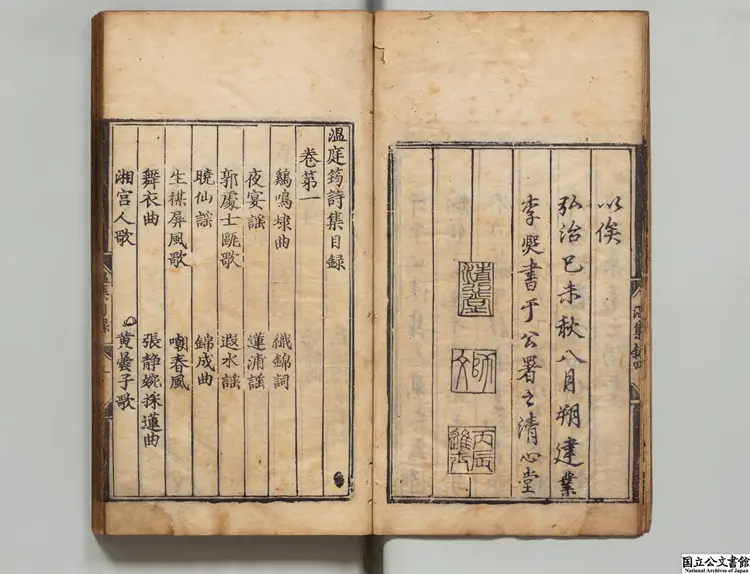 以俟
弘治己未秋八月朔建業
李熙書于公署之清心堂
師文
丙辰進士
温庭筠詩集目録
卷第一
鷄鳴埭曲 織錦詞
夜宴謡 蓮浦謡
郭處士甌歌 遐水謡
曉仙謡 錦成曲
生禖屏風歌 嘲春風
舞衣曲 張静婉採蓮曲
湘宫人歌 黄曇子歌
国立公文書館
National Archives of Japan